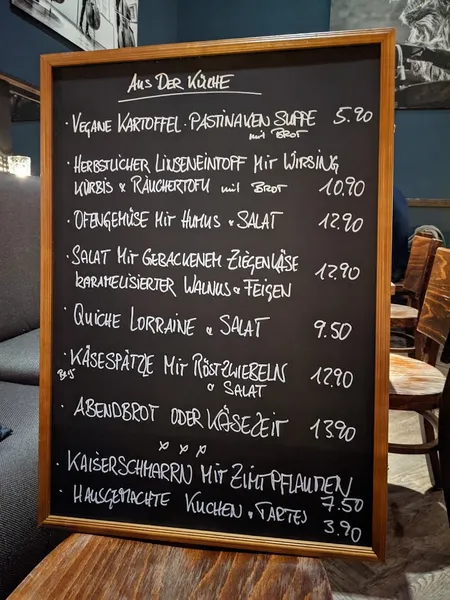 Aus Der Küche
· Vegane Kartoffel-Pastinaken Suppe 5.90
mit Brot
· Herbstlicher Linseneintopf mit Wirsing
Kürbis & Räuchertofu mit Brot 10.90
· Ofengemüse mit Humus & Salat 12.90
· Salat mit gebackenem Ziegenkäse
karamelisierter Walnuss & Feigen 12.90
· Quiche Lorraine & Salat 9.50
· Käsespätzle mit Röstzwiebeln
& Salat 12.90
· Abendbrot oder Käsezeit 13.90
x x x
· Kaiserschmarrn mit Zimtpflaumen
7.50
· Hausgemachte Kuchen & Tartes
3.90